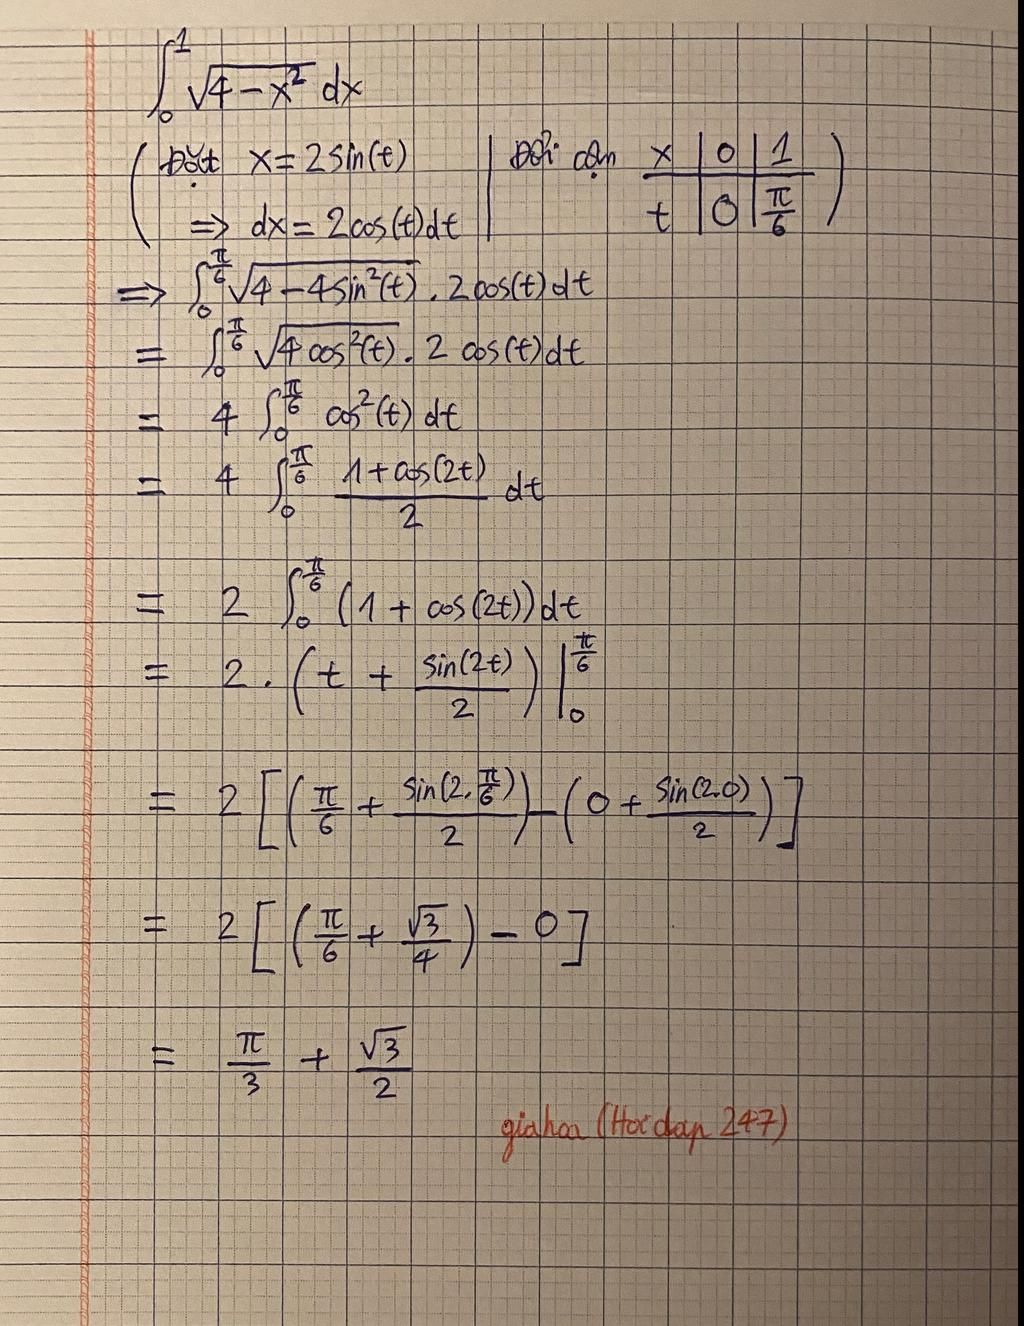 ∫₀¹ √(4 − x²) dx
( Đặt x = 2 sin(t) | Đổi cận x | 0 | 1 )
⇒ dx = 2cos(t)dt | t | 0 | π/6
⇒ ∫₀^(π/6) √(4 − 4sin²(t)) . 2cos(t)dt
= ∫₀^(π/6) √(4cos²(t)) . 2 cos(t)dt
= 4 ∫₀^(π/6) cos²(t) dt
= 4 ∫₀^(π/6) (1 + cos(2t))/2 dt
= 2 ∫₀^(π/6) (1 + cos(2t))dt
= 2 . (t + sin(2t)/2) |₀^(π/6)
= 2 [(π/6 + sin(2.π/6)/2) − (0 + sin(2.0)/2)]
= 2 [(π/6 + √3/4) − 0]
= π/3 + √3/2
giahoa (Hoidap 247)